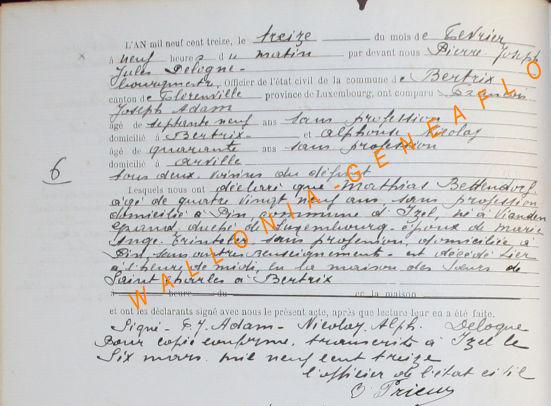 L'AN mil neuf cent treize, le treize du mois de Fevrier
à neuf heures du matin par devant nous Pierre Joseph
Jules Delogne
bourgmestre, Officier de l'état civil de la commune de Bertrix
canton de Florenville province de Luxembourg, ont comparu
Joseph Adam
âgé de septante neuf ans sans profession
domicilié à Bertrix et Alphonse Nicolay
âgé de quarante ans sans profession
domicilié à Orville
tous deux voisins du défunt
6
Lesquels nous ont déclaré que Mathias Bettendorf
âgé de quatre vingt neuf ans, sans profession
domicilié à Pin, commune d'Izel, né à Vianden
Grand duché de Luxembourg époux de Marie
Ange sans profession, domiciliée à
Pin, sans autres renseignements est décédé hier
à l'heure de midi, en la maison des Sœurs de
Saint Charles à Bertrix
à heure du en la maison
et ont les déclarants signé avec nous le présent acte, après que lecture leur en a été faite.
Signé - J. Adam - Nicolay Alph. Delogne
Pour copie conforme, transcrite à Izel le
Six mars mil neuf cent treize
l'officier de l'état civil
O. Prieur
WALLONIA-GENEAFLO